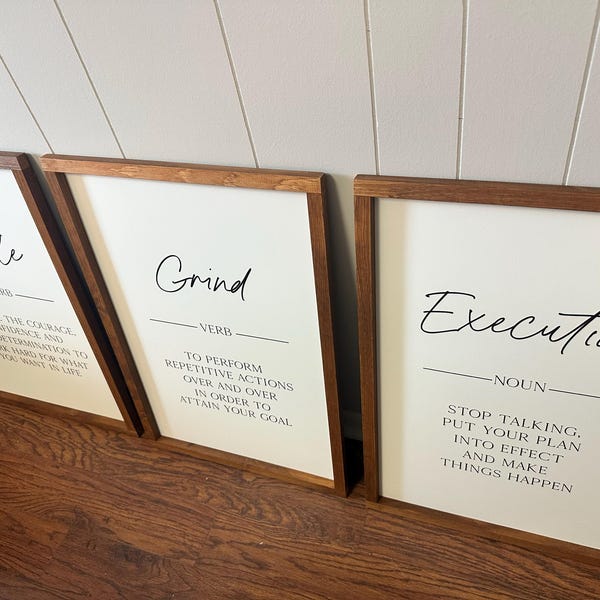 THE COURAGE,
AND
DETERMINATION TO
HARD FOR WHAT
YOU WANT IN LIFE
Grind
VERB
TO PERFORM
REPETITIVE ACTIONS
OVER AND OVER
IN ORDER TO
ATTAIN YOUR GOAL
Executi
NOUN
STOP TALKING,
PUT YOUR PLAN
INTO EFFECT
AND MAKE
THINGS HAPPEN